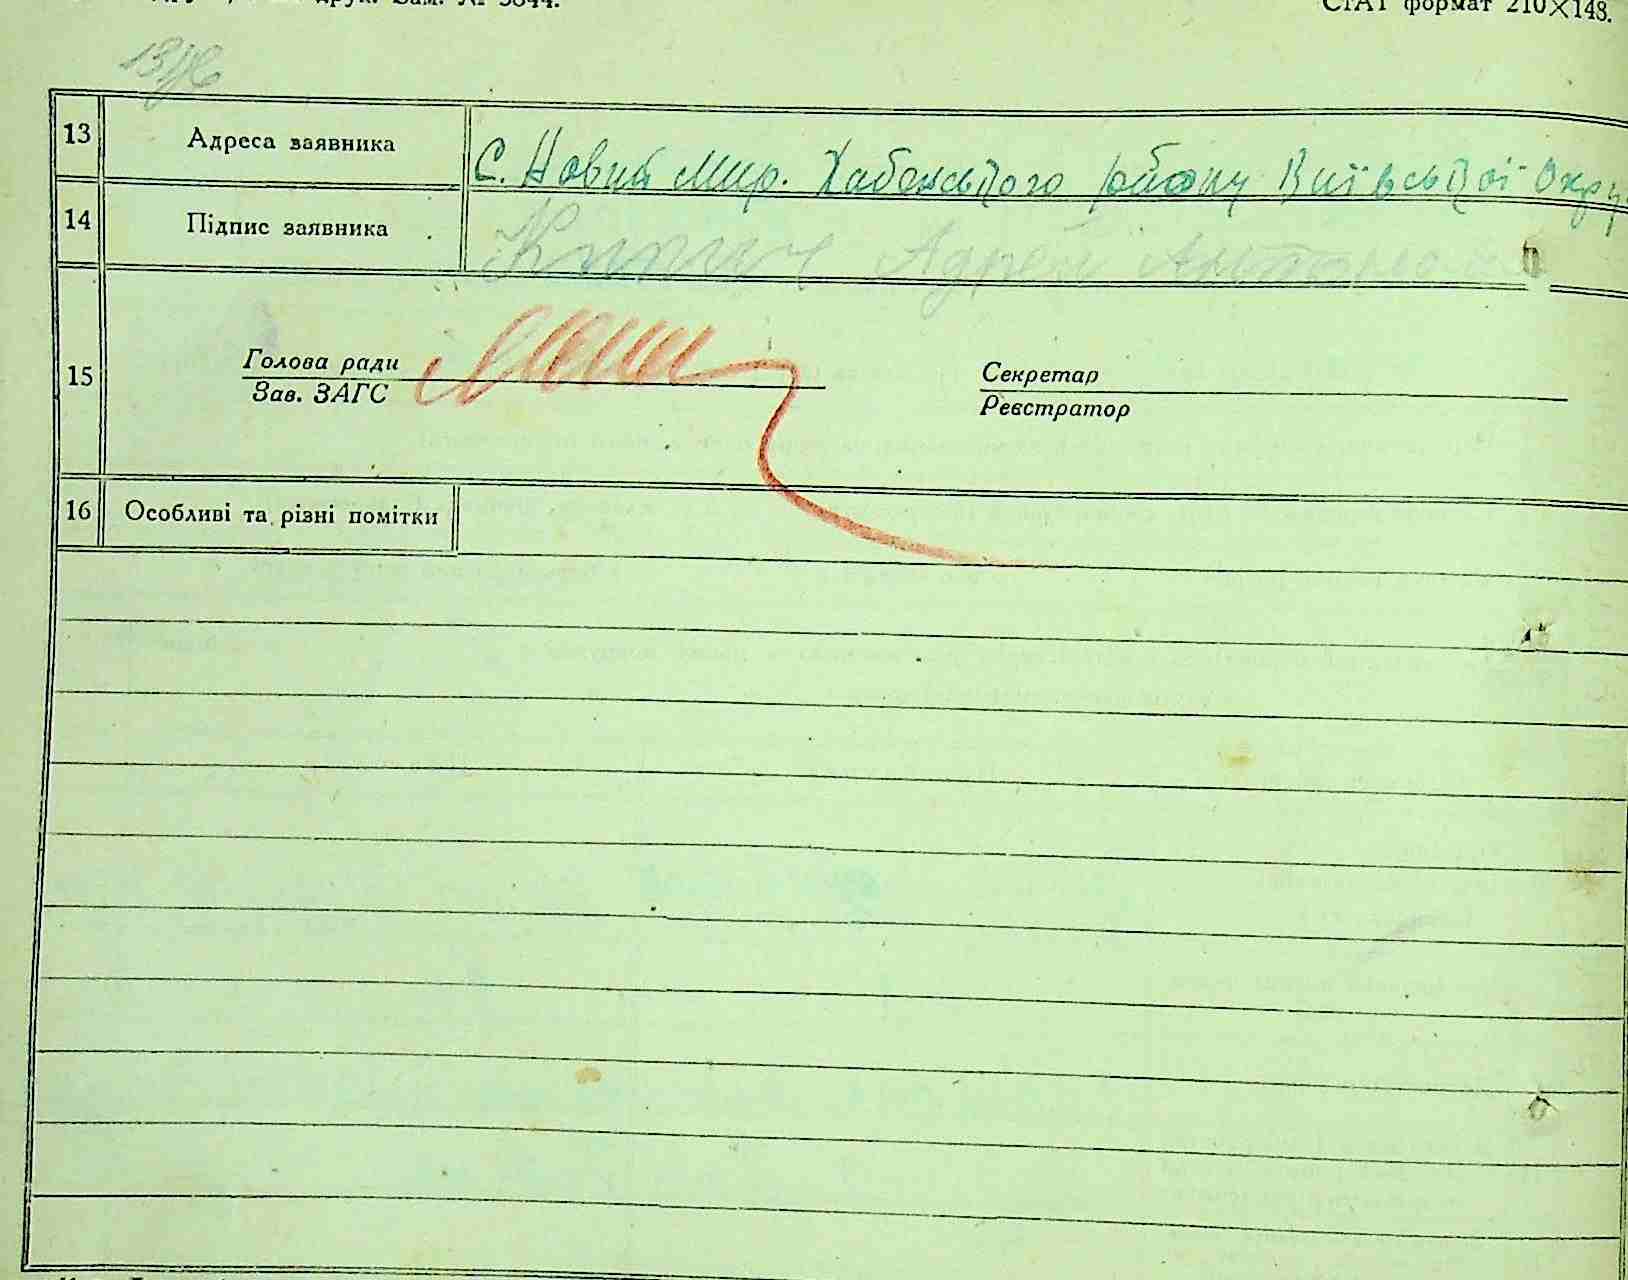 друк. Зам. № 3844.
СТАТ формат 210×148.
13 Адреса заявника С. Новий Мир. Хабенського району Київської Окру
14 Підпис заявника Адрей
15 Голова ради
Зав. ЗАГС
Секретар
Реєстратор
16 Особливі та різні помітки